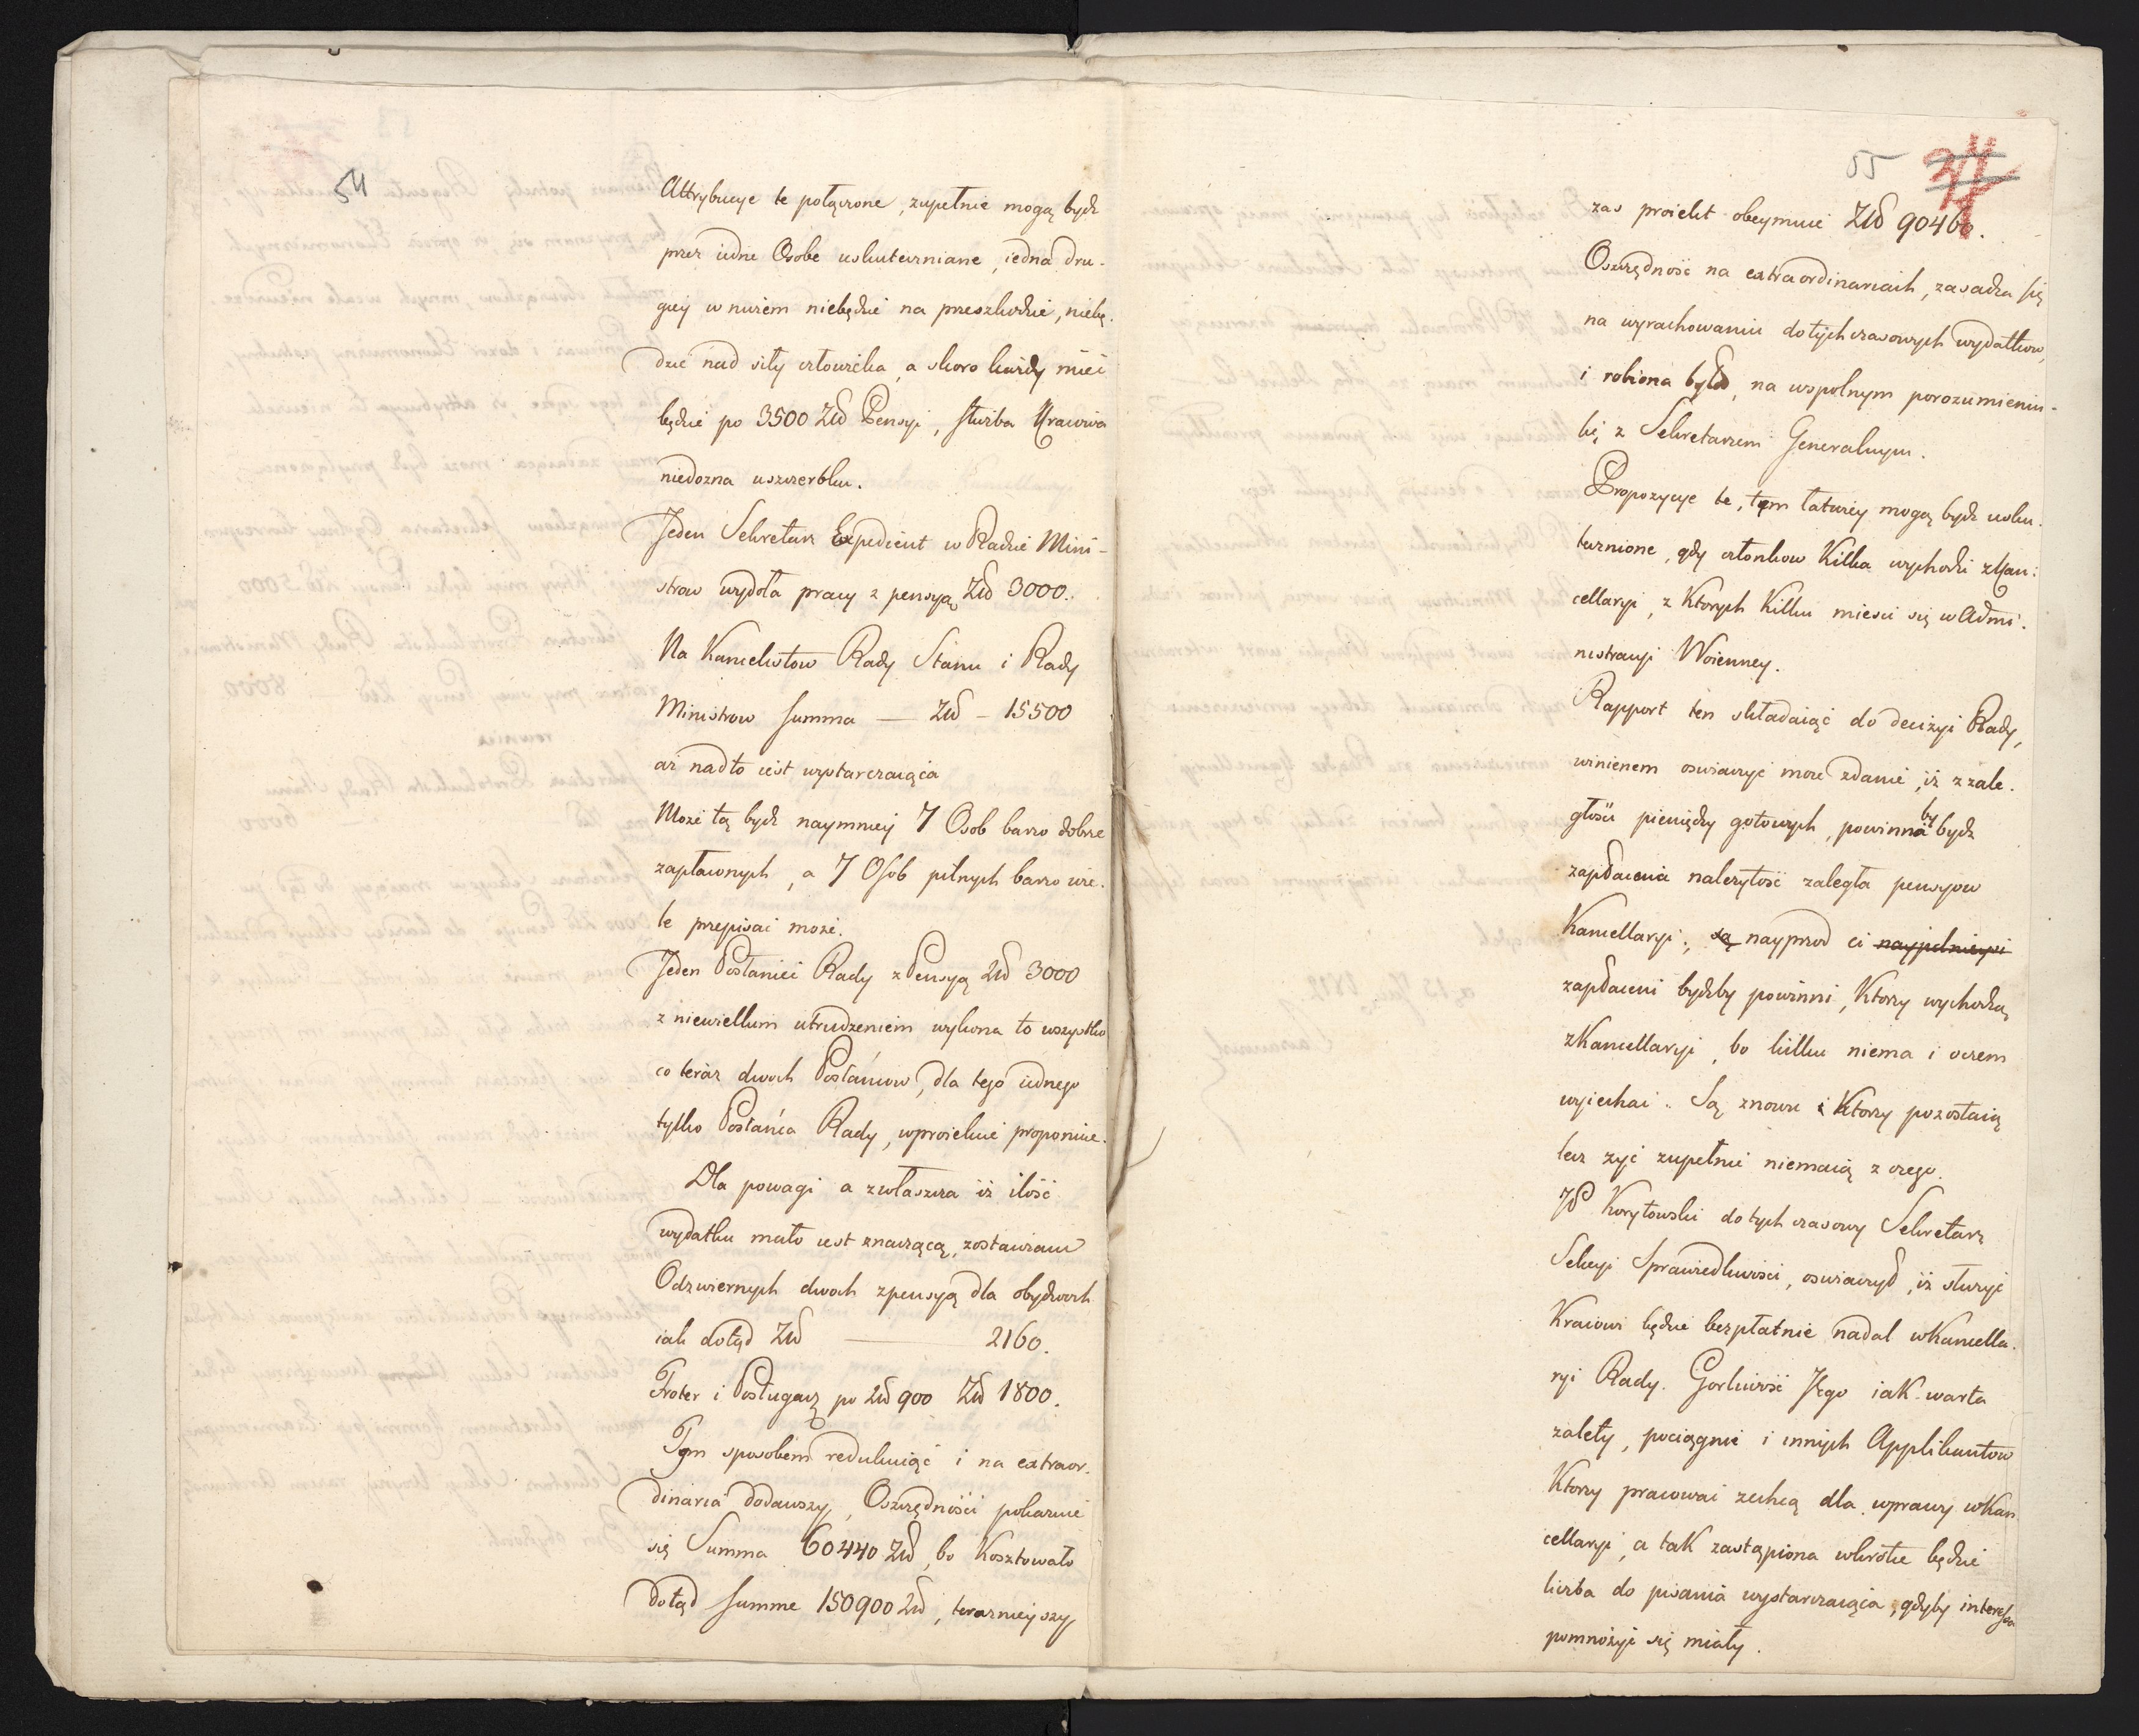 54
Attrybucye te połączone, zupełnie mogą bydź
przez iedne Osobe uskuteczniane, iedna dru-
giey w niczem niebędzie na przeszkodzie, niebę-
dzie nad siły człowieka, a skoro każdy mieć
będzie po 3500 Zł Pensyi, służba Kraiowa
niedozna uszczerbku.
Jeden Sekretarz Expedient w Radzie Mini-
strow wydoła pracy z pensyą Zł 3000.
Na Kancelistow Rady Stanu i Rady
Ministrow summa — Zł – 15500
aż nadto iest wystarczaiąca
Może tą bydź naymniey 7 Osob barzo dobrze
zapłaconych, a 7 Osob pilnych barzo wie-
le przepisać może.
Jeden Posłaniec Rady z Pensyą Zł 3000
z niewielkim utrudzeniem wykona to wszystko
co teraz dwoch Posłancow, dla tego iednego
tylko Posłańca Rady, wproiekcie proponuie.
Dla powagi a zwłaszcza iż ilość
wydatku mało iest znaczącą, zostawiam
Odzwiernych dwoch zpensyą dla obydwoch
iak dotąd Zł — 2160.
Froter i Posługacz po Zł 900 Zł 1800.
Tym sposobem redukuiąc i na extraor-
dinaria dodawszy, Oszczędności pokazuie
się Summa 60440 Zł, bo Kosztowało
dotąd summe 150900 Zł, teraznieyszy
55
zas proiekt obeymuie Zł 90460.
Oszczędność na extraordinariach, zasadza się
na wyrachowaniu dotychczasowych wydatkow,
i robiona była, na wspolnym porozumieniu-
się z Sekretarzem Generalnym.
Propozycye te, tem łatwiey mogą bydź usku-
tecznione, gdy członkow Kilka wychodzi zKan-
cellaryi, z Ktorych Kilku miesci się w Admi-
nistracyi Woienney.
Rapport ten składaiąc do decizyi Rady,
winienem oswiadczyć moie zdanie, iż z zale-
głości pieniędzy gotowych, powinna by bydź
zapłacenia należytość zaległa pensyow
Kancellaryi; są nayprzod ci naypilnieysi
zapłaceni bydźby powinni, Ktorzy wychodzą
zKancellaryi, bo kilku niema i oczem
wyiechać. Są znowu i Ktorzy pozostaią
lecz zyć zupełnie niemaią z czego.
JP Korytowski dotychczasowy Sekretarz
Sekcyi Sprawiedliwości, oswiadczył, iż służyć
Kraiowi będzie bezpłatnie nadal wKancella-
ryi Rady. Gorliwość Jego iak warta
zalety, pociągnie i innych Applikantow
Ktorzy pracować zechcą dla wprawy wKan
cellaryi, a tak zastąpiona wkrotce będzie
liczba do pisania wystarczaiąca, gdyby interessa
pomnożyć się miały.